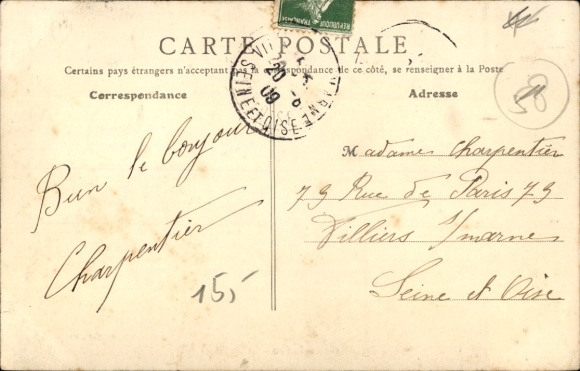 CARTE POSTALE
Certains pays étrangers n'acceptant pas la correspondance de ce côté, se renseigner à la Poste
Correspondance
Adresse
Bien le bonjour
Charpentier
Madame Charpentier
79 Rue de Paris 79
Villiers s/marne
Seine et Oise
SEINE ET OISE
20
09
155